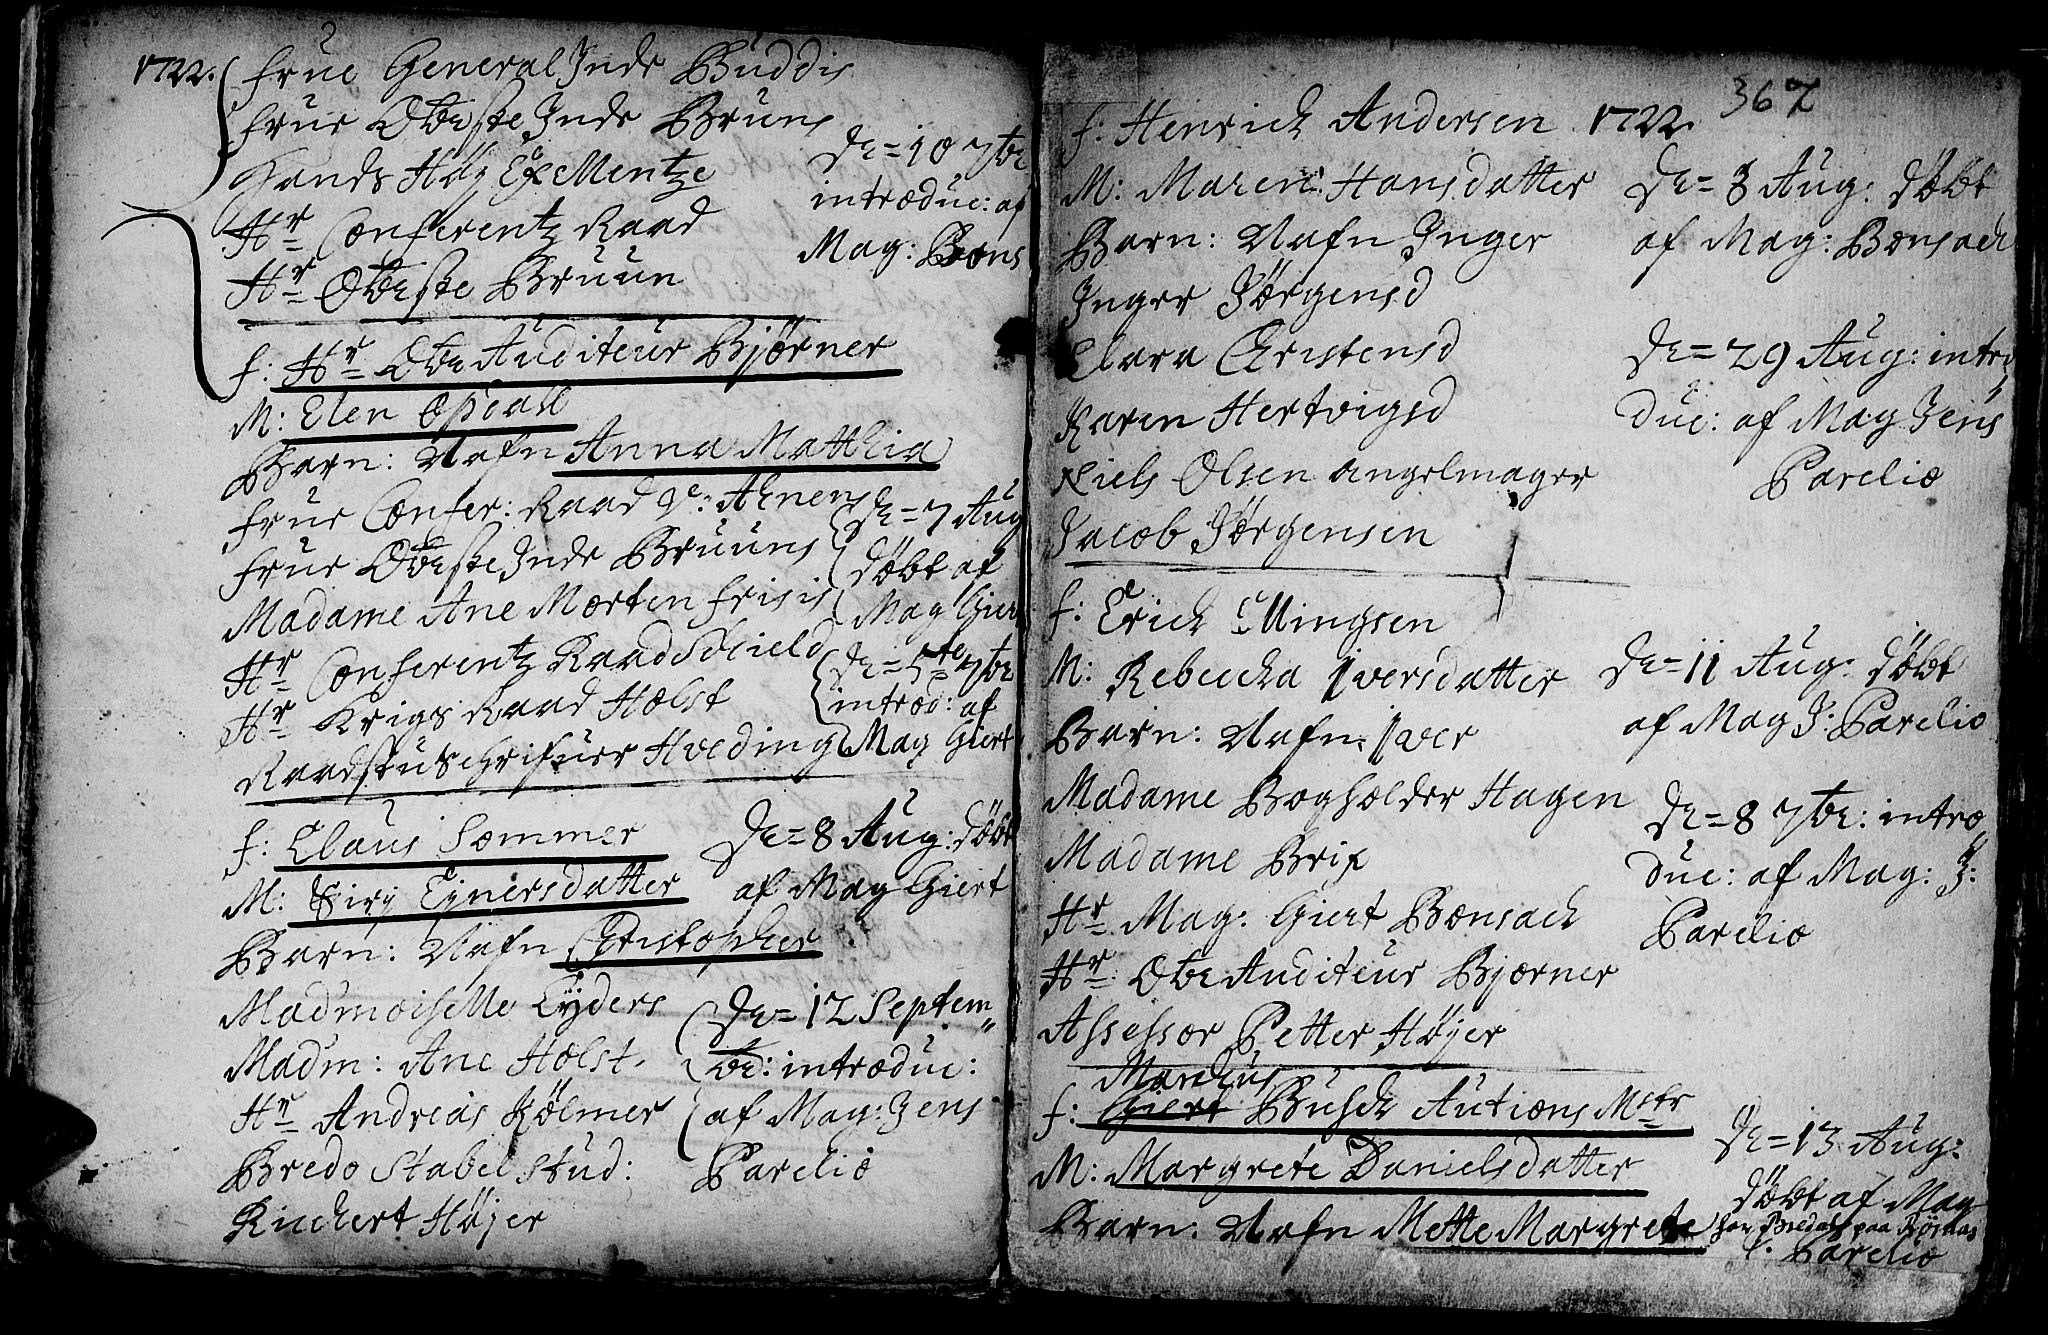 1722.
Frue General Inde Buddis
Frue Obr ste Inde Bruns
Hands Høy Ex Mentze
Hr Conferentz Raad
Hr Obr ste Bruun
De = 10 7br
introduc: af
Mag: Bons
f: Hr Obr Auditeur Bjørner
M: Elen Opdall
Barn: Nafn Anna Matthia
Frue Confer: Raad Ahnens
Frue Obr ste Inde Bruuns
Madame Ane Morten Frisis
Hr Conferentz Raad Schield
Hr Krigs Raad Holst
Raadstu Schrifuer Hveding
De = 7 Aug
døbt af
Mag Giert
De = 5te 7br
introd: af
Mag Giert
f: Claus Sommer
M: Siry Ejnersdatter
Barn: Nafn Christopher
De = 8 Aug: døbt
af Mag Giert
Madmoiselle Eyders
Madm: Ane Holst
Hr Andreas Kølmer
Bredo Stabel Stud:
Richert Høyer
De = 12 Septem
br: introduc:
af Mag: Jens
Parelio
367
f: Henrich Andersen 1722.
M: Maren Hansdatter
Barn: Nafn Inger
Inger Jørgensd
Clara Christensd
Karen Hertvigsd
Niels Olsen angelmager
Jacob Jørgensen
De = 3 Aug: døbt
af Mag: Bonsach
De = 29 Aug: intro
duc: af Mag Jens
Parelio
f: Erich Ellingsen
M: Rebeccha Iversdatter
Barn: Nafn Iver
Madame Bogholder Hagen
Madame Brix
Hr Mag: Giert Bonsach
Hr Obr Auditeur Bjørner
Assessor Petter Høyer
De = 11 Aug: døbt
af Mag J: Parelio
De = 8 7br: intro
duc: af Mag: J:
Parelio
Marchus
f: Giert Busch Autions Mstr
M: Margrete Danielsdatter
Barn: Nafn Mette Margrete
De = 13 Aug:
døbt af Mag
Parelio